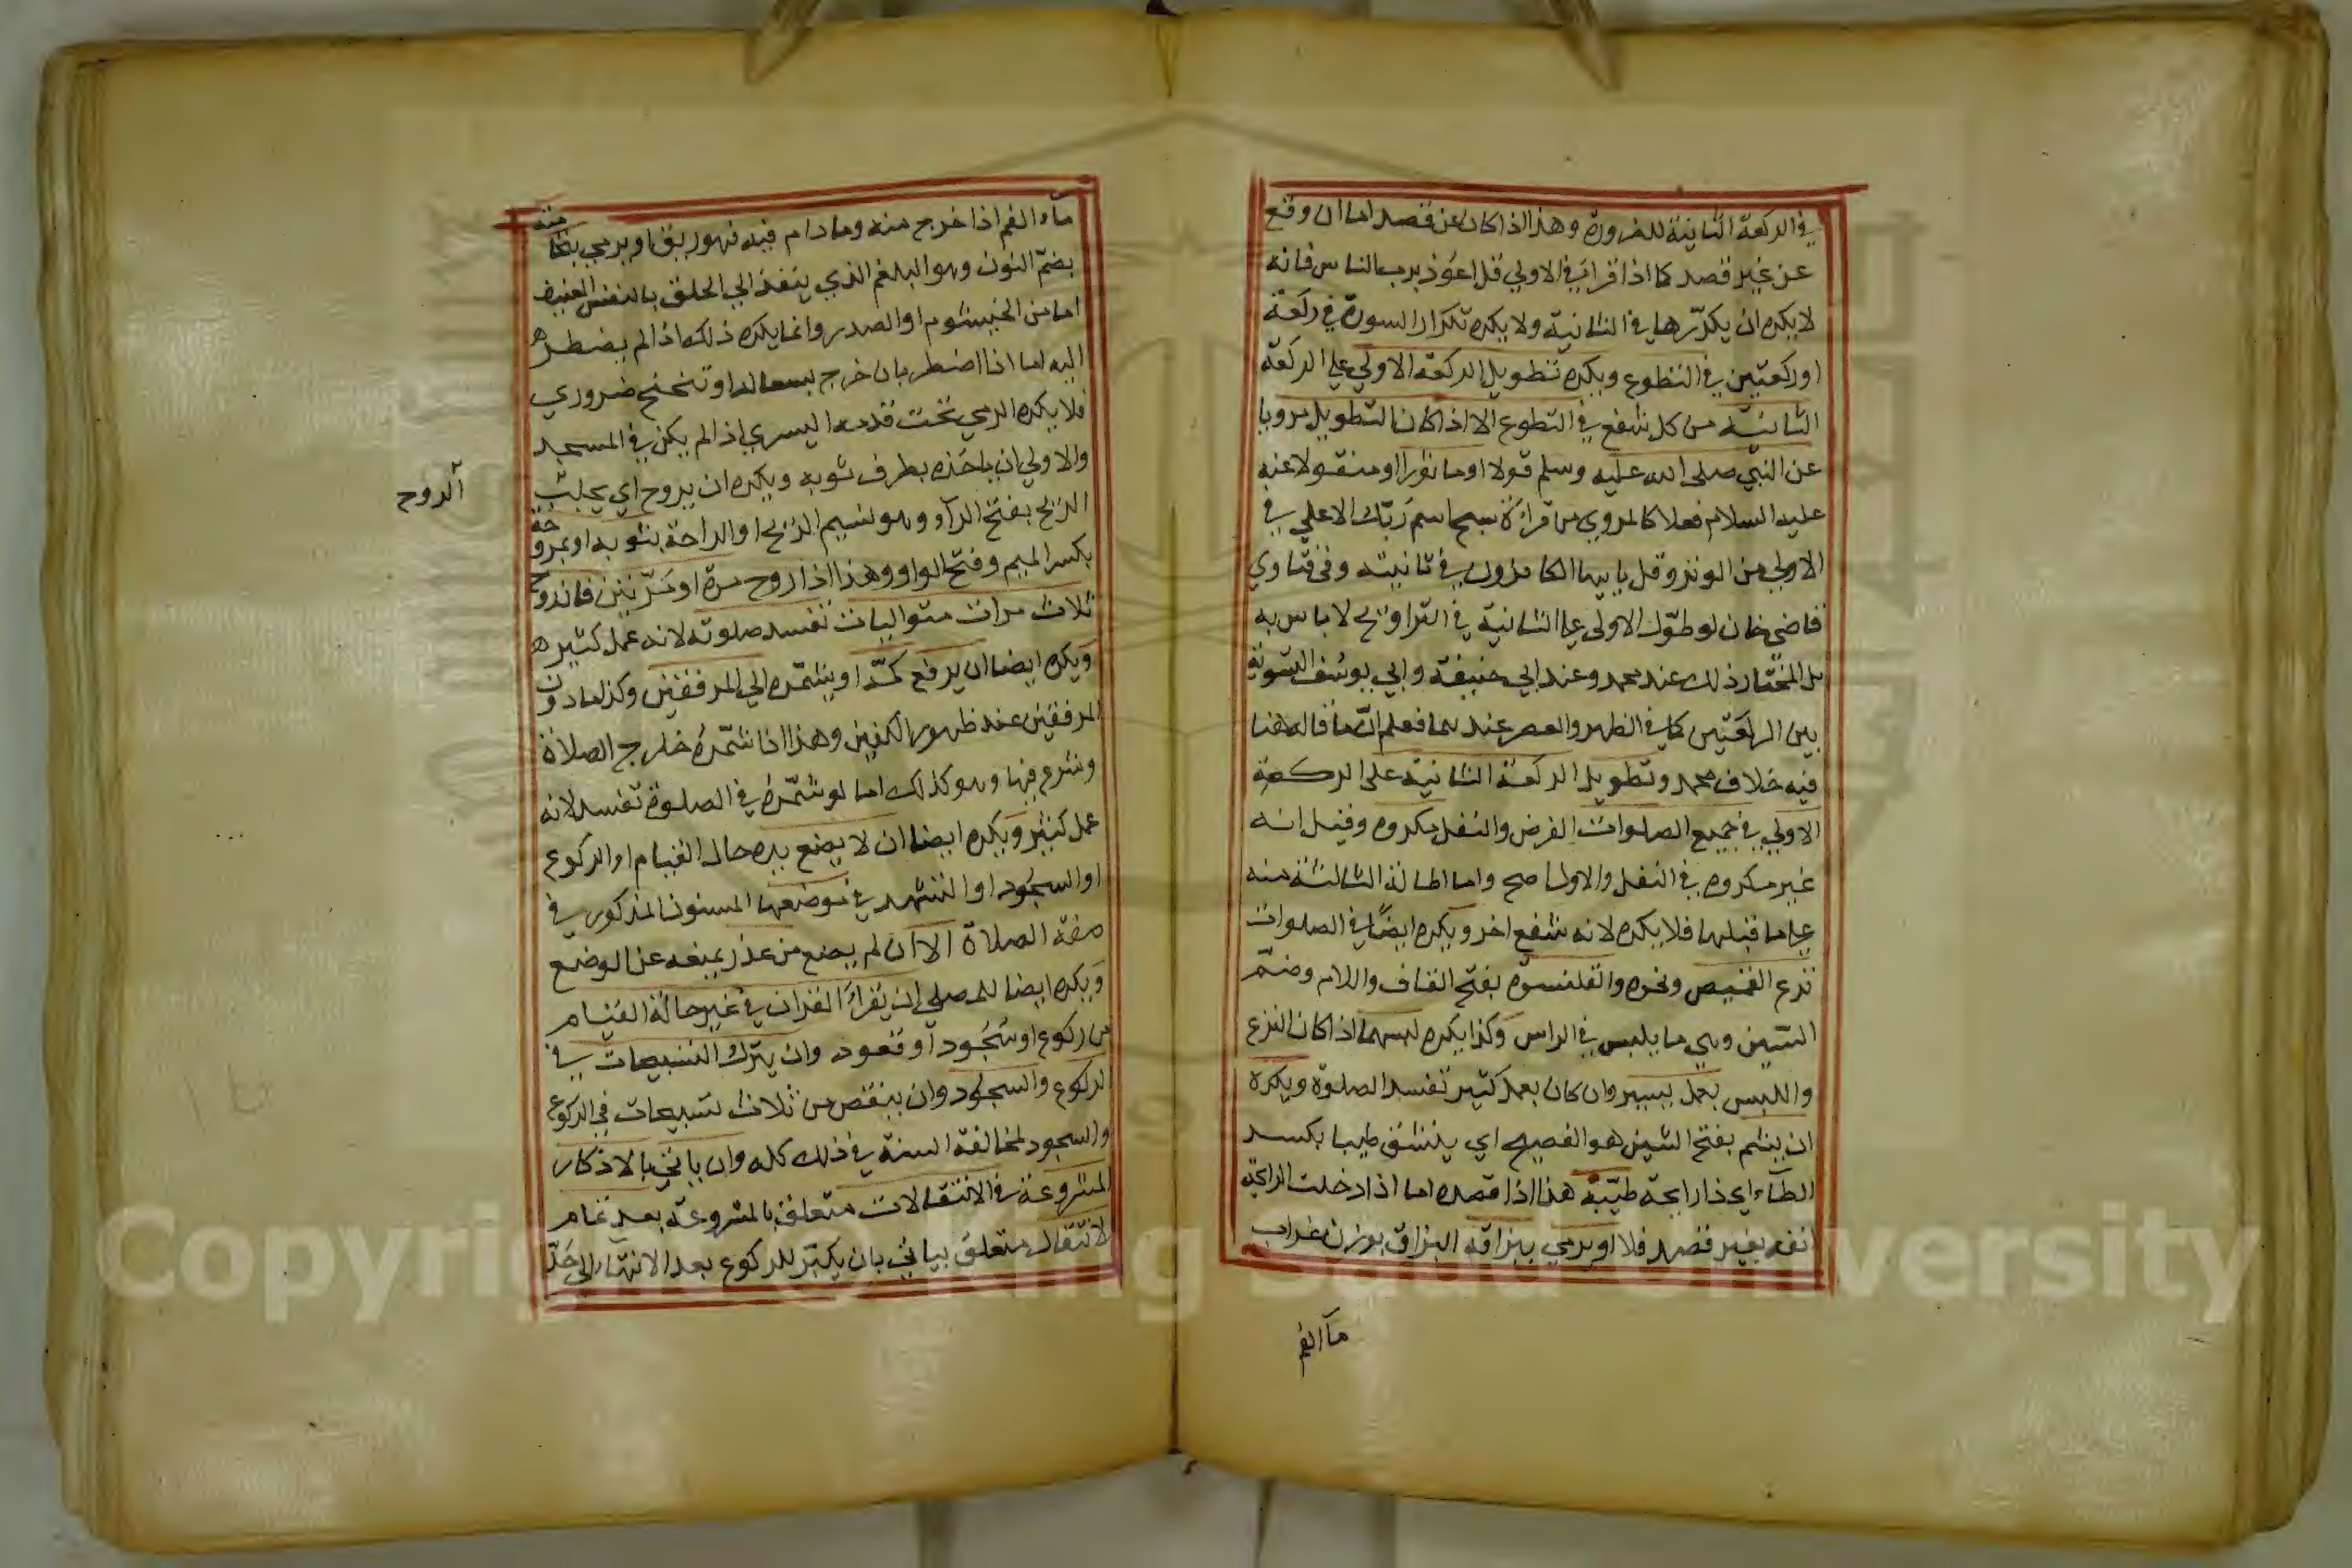 في الركعة الثانية للضرورة وهذا اذا كان عن قصد اما ان وقع
عن غير قصد كما اذا قرا في الاولي قل اعوذ برب الناس فانه
لا يكره ان يكرّرها في الثانية ولا يكره تكرار السورة في ركعة
او ركعتين في التطوع ويكره تطويل الركعة الاولي علي الركعة
الثانية من كل شفع في التطوع الا اذا كان التطويل مرويا
عن النبي صلى الله عليه وسلم قولا او ماثورا او منقولا عنه
عليه السلام فعلا كالمروي من قراءة سبح اسم ربّك الاعلي في
الاولي من الوتر وقل يا ايها الكافرون في ثانيته وفي فتاوي
قاضي خان لو طوّل الاولى علي الثانية في التراويح لا باس به
بل المختار ذلك عند محمد وعند ابي حنيفة وابي يوسف التسوية
بين الركعتين كما في الظهر والعصر عندهما فعلم انّ ما قاله هنا
فيه خلاف محمد وتطويل الركعة الثانية على الركعة
الاولي في جميع الصلوات الفرض والنفل مكروه وقيل انه
غير مكروه في النفل والاول اصح واما اطالة الثالثة منه
علي ما قبلها فلا يكره لانه شفع اخر ويكره ايضًا في الصلوات
نزع القميص ونحوه والقلنسوة بفتح القاف واللام وضمّ
السّين وهي ما يلبس في الراس وكذا يكره لبسهما اذا كان النزع
واللبس بعمل يسير وان كان بعمل كثير تفسد الصلوة ويكره
ان يشم بفتح الشين هو الفصيح اي يلنشق طيبا بكسر
الطآء اي ذا رايحة طيّبة هذا اذا قصده اما اذا دخلت الرايحة
انفه بغير قصد فلا او يرمي ببزاقه البزاق بوزن غراب
مآ الفم
مآء الفم اذا خرج منه وما دام فيه فهو ريق او يرمي بنخامته
بضمّ النون وهو البلغم الذي ينفذ الي الحلق بالنفس العنيف
اما من الخيشوم او الصدر وانما يكره ذلك اذا لم يضطر
اليه اما اذا اضطر بان خرج بسعال او تنحنح ضروري
فلا يكره الرمي تحت قدمه اليسري اذا لم يكن في المسجد
والاولي ان ياخذه بطرف ثوبه ويكره ان يروح اي يجلب
الرّيح بفتح الرآء وهو نسيم الرّيح او الراحة بثوبه او بمروحة
بكسر الميم وفتح الواو وهذا اذا روح مرة او مرّتين فان روح
ثلاث مرات متواليات تفسد صلوته لانه عمل كثير
ويكره ايضا ان يرفع كمّه او يشمّره الي المرفقين وكذا ما دون
المرفقين عند ظهور الكفين وهذا اذا شمّره خارج الصلاة
وشرع فيها وهو كذلك اما لو شمّره في الصلوة تفسد لانه
عمل كثير ويكره ايضا ان لا يضع يده حال القيام او الركوع
او السجود او التشهد في موضعها المسنون المذكور في
صفة الصلاة الا ان لم يضع من عذر يمنعه عن الوضع
ويكره ايضا للمصلي ان يقراء القران في غير حالة القيام
من ركوع او سجود او قعود وان يترك التسبيحات في
الركوع والسجود وان ينقص من ثلاث تسبيحات في الركوع
والسجود لمخالفة السنة في ذلك كله وان ياتي بالاذكار
المشروعة في الانتقالات متعلق بالمشروعة بعد تمام
الانتقال متعلق بياتي بان يكبّر للركوع بعد الانتهاء الي حدّ
الروح